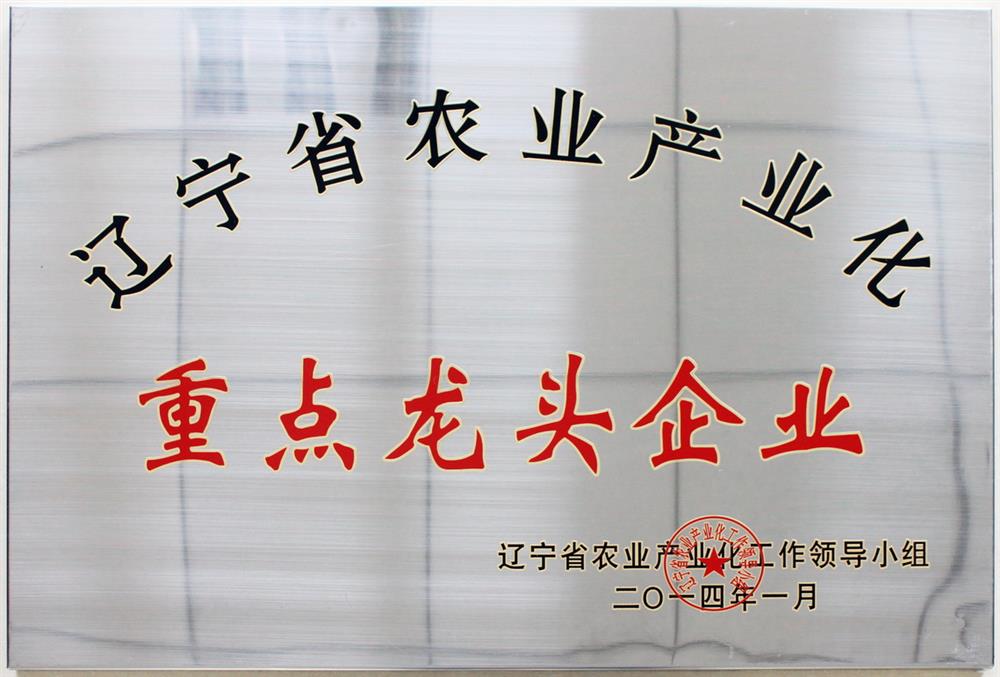 辽宁省农业产业化
重点龙头企业
辽宁省农业产业化工作领导小组
二〇一四年一月
辽宁省农业产业化工作领导小组